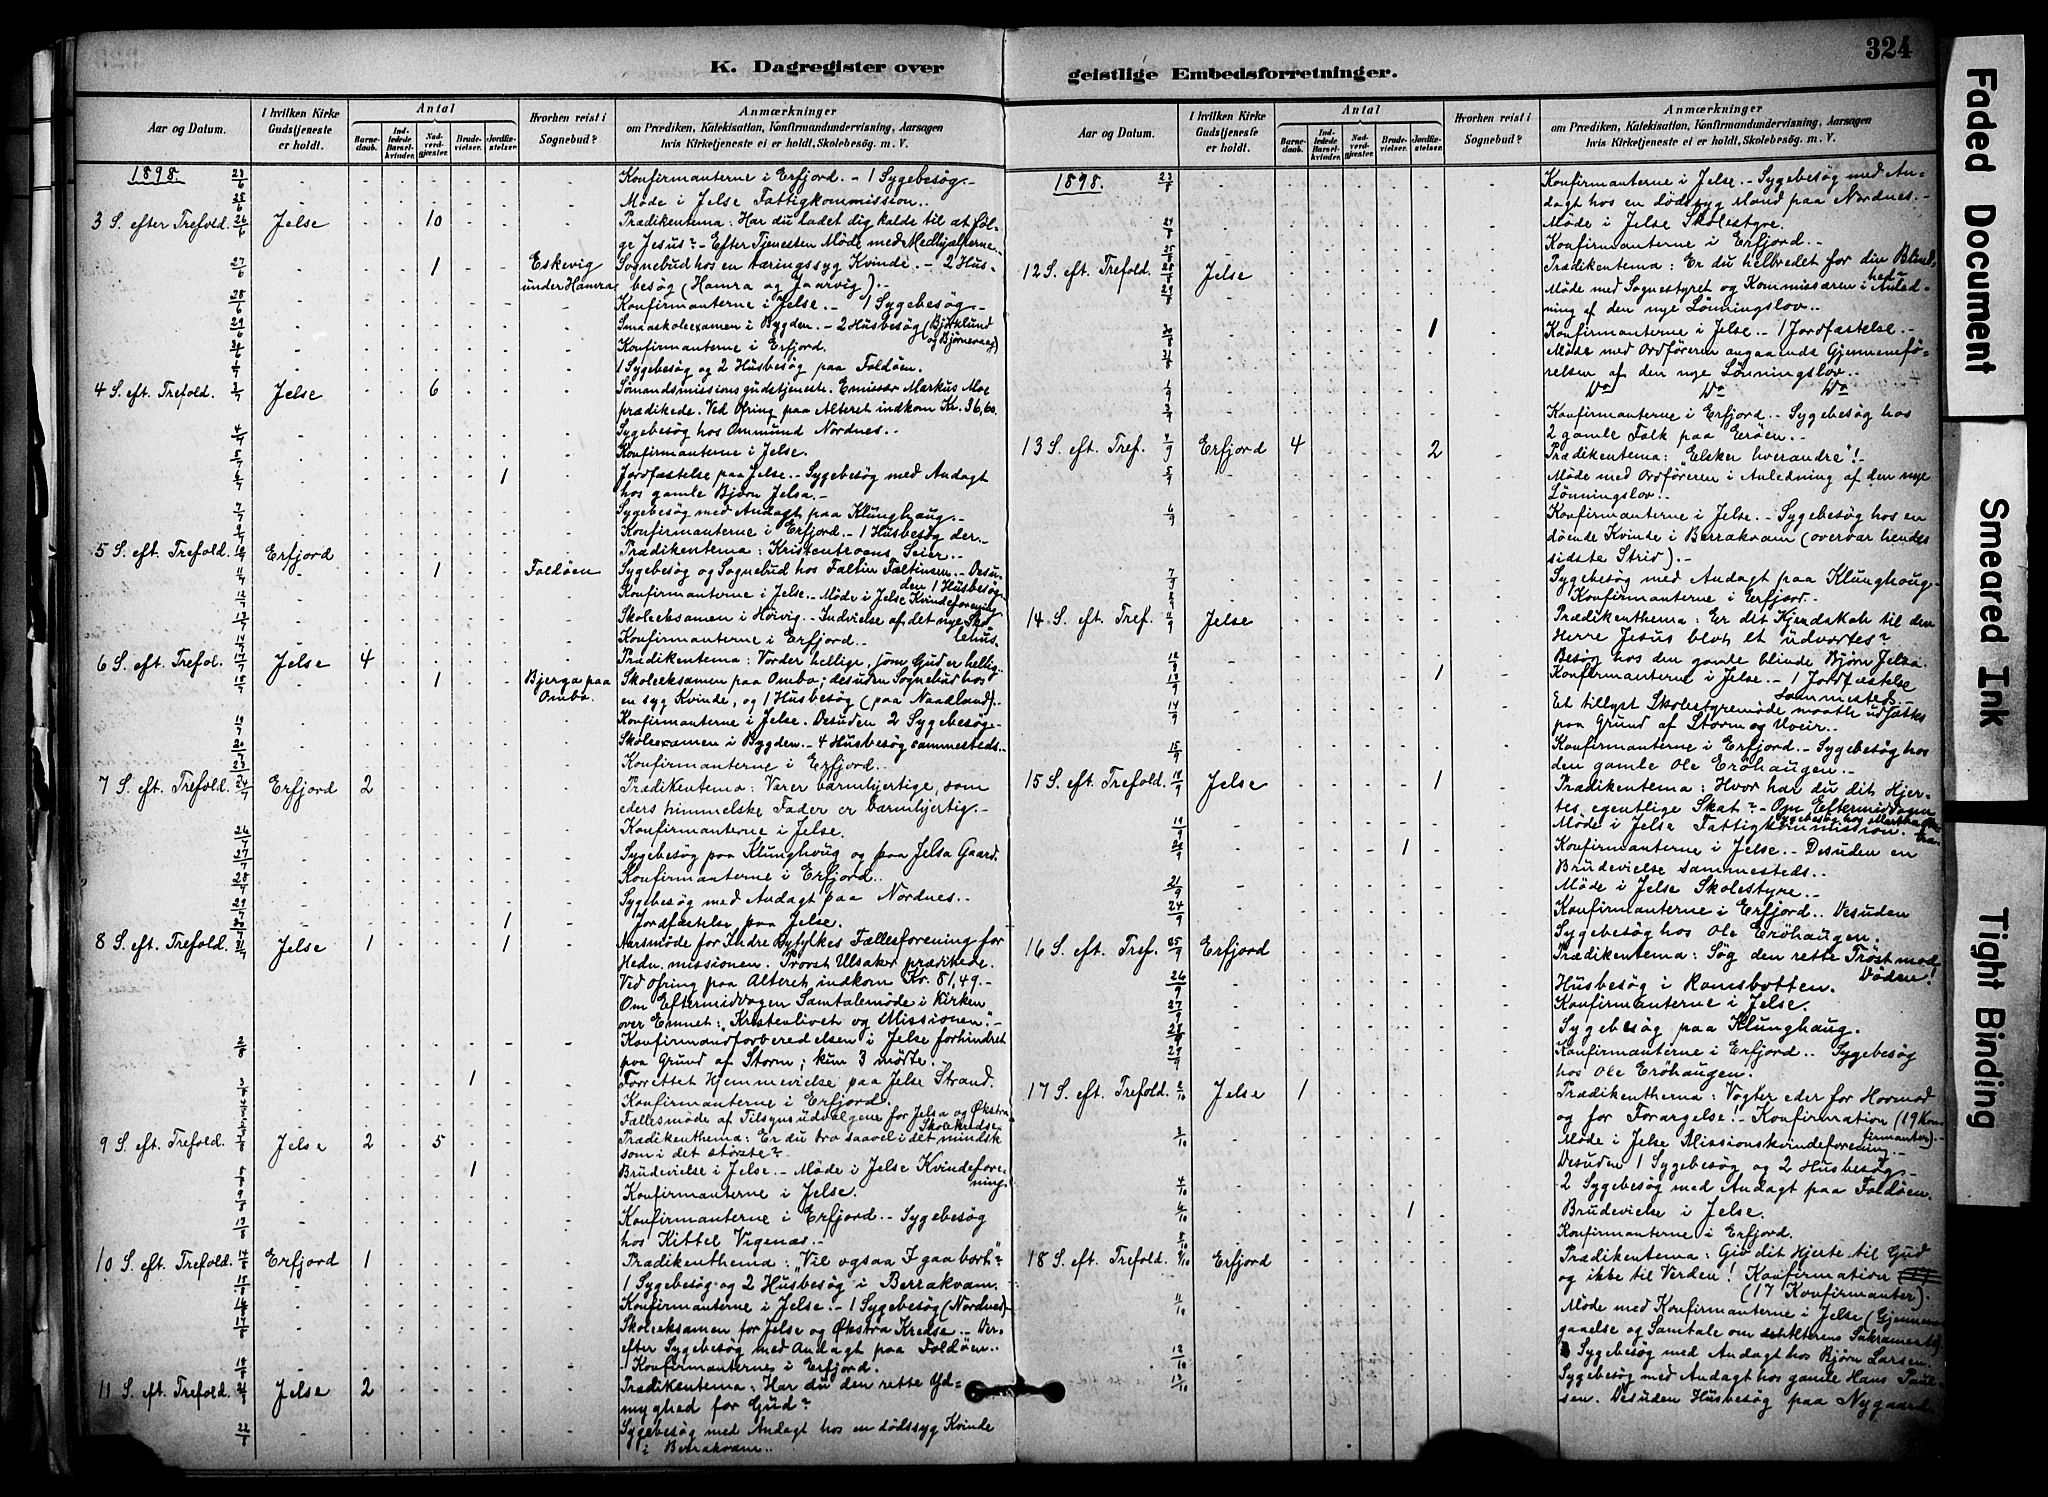 324
K. Dagregister over
geistlige Embedsforretninger.
Aar og Datum.
I hvilken Kirke Gudstjeneste er holdt.
Antal
Barnedaab.
Indledede Barselkvinder.
Nadverdgjæster.
Brudevielser.
Jordfæstelser.
Hvorhen reist i Sognebud?
Anmærkninger
om Prædiken, Katekisation, Konfirmandundervisning, Aarsagen
hvis Kirketjeneste ei er holdt, Skolebesøg. m. V.
1898. 23/6 Konfirmanterne i Erfjord. - 1 Sygebesøg.-
25/6 Møde i Jelse Fattigkommission..
3 S. efter Trefold. 26/6 Jelse 10 Prædikentema: Har du ladet dig kalde til at föl-
ge Jesus? - Efter Tjenesten Møde med Medhjælperne.
27/6 1 Eskevig Sognebud hos en tæringssyg Kvinde. - 2 Hus-
under Hamra besøg (Hamra og Jaarvig).-
28/6 Konfirmanterne i Jelse. - 1 Sygebesøg.-
29/6 Smaaskoleexamen i Bygden. - 2 Husbesøg (Björklund
og Bjørnevaag)
Konfirmanterne i Erfjord.
1 Sygebesøg og 2 Husbesøg paa Foldöen.
4 S. eft. Trefold. 3/7 Jelse 6 Sømandsmissionsgudstjeneste. Emissær Markus Moe
prædikede. Ved Ofring paa Alteret indkom Kr. 36,60.
4/7 Sygebesøg hos Ommund Nordnes.-
5/7 Konfirmanterne i Jelse.
6/7 1 Jordfæstelse paa Jelse. - Sygebesøg med Andagt
hos gamle Bjørn Jelsa.-
7/7 Sygebesøg med Andagt paa Klunghaug.-
9/7 Konfirmanterne i Erfjord. - 1 Husbesøg der.-
5 S. eft. Trefold. 10/7 Erfjord Prædikentema: Kristentroens Seier..
11/7 1 Foldøen Sygebesøg og Sognebud hos Faltin Faltinsen. - Desu-
den 1 Husbesøg.
12/7 Konfirmanterne i Jelse. - Møde i Jelse Kvindeforening
13/7 Skoleeksamen i Hövig. - Indvielse af det nye Sko-
lehus.
14/7 Konfirmanterne i Erfjord..
6 S. eft. Trefol. 17/7 Jelse 4 Prædikentema: Vorder hellige, som Gud er hellig.
18/7 1 Bjerga paa Skoleeksamen paa Ombo; desuden Sognebud hos
Ombo. en syg Kvinde, og 1 Husbesøg (paa Naadland)..
19/7 Konfirmanterne i Jelse. Desuden 2 Sygebesøg.-
20/7 Skoleexamen i Bygden. - 4 Husbesøg sammesteds..
23/7 Konfirmanterne i Erfjord..
7 S. eft. Trefold. 24/7 Erfjord 2 Prædikentema: Værer barmhjertige, som
eders himmelske Fader er barmhjertig.-
26/7 Konfirmanterne i Jelse.
27/7 Sygebesøg paa Klunghoug og paa Jelsa Gaard.
28/7 Konfirmanterne i Erfjord..
29/7 Sygebesøg med Andagt paa Nordnes..
30/7 1 Jordfæstelse paa Jelse.
8 S. eft. Trefold. 31/7 Jelse 1 1 Aarsmøde for Indre Ryfylkes Fællesforening for
Hedn. missionen. Provst Ulsaker prædikede.
Ved Ofring paa Alteret indkom Kr. 81,49.-
Om Eftermiddagen Samtalemøde i Kirken
over Emnet: "Kristenlivet og Missionen".-
2/8 Konfirmandforberedelsen i Jelse forhindret
paa Grund af Storm; kun 3 mødte.-
3/8 1 Forrettet Hjemmevielse paa Jelse Strand.
Konfirmanterne i Erfjord.
Fællesmøde af Tilsynsudvalgene for Jelsa og Økstra
Skolekredse
9 S. eft. Trefold. 7/8 Jelse 2 5 Prædikenthema: Er du tro saavel i det mindste
som i det störste?-
8/8 1 Brudevielse i Jelse. - Møde i Jelse Kvindefore-
ning.
9/8 Konfirmanterne i Jelse.
13/8 Konfirmanterne i Erfjord. - Sygebesøg
hos Kittel Vigenæs.-
10 S. eft. Trefold. 14/8 Erfjord 1 Prædikenthema: "Vil ogsaa I gaa bort?"
15/8 1 Sygebesøg og 2 Husbesøg i Berrakvam.
16/8 Konfirmanterne i Jelse. - 1 Sygebesøg (Nordnes)-
17/8 Skoleeksamen for Jelse og Økstra Kredse. - Der-
efter Sygebesøg med Andagt paa Foldöen..
18/8 Konfirmanterne i Erfjord.
11 S. eft. Trefold. 21/8 Jelse 2 Prædikentema: Har du den rette Yd-
myghed for Gud?
22/8 Sygebesøg med Andagt hos en dödssyg Kvinde
i Berrakvam..
Aar og Datum.
I hvilken Kirke Gudstjeneste er holdt.
Antal
Barnedaab.
Indledede Barselkvinder.
Nadverdgjæster.
Brudevielser.
Jordfæstelser.
Hvorhen reist i Sognebud?
Anmærkninger
om Prædiken, Katekisation, Konfirmandundervisning, Aarsagen
hvis Kirketjeneste ei er holdt, Skolebesøg. m. V.
1898. 23/8 Konfirmanterne i Jelse. - Sygebesøg med An-
dagt hos en dødssyg Mand paa Nordnes.-
24/8 Møde i Jelse Skolestyre.
25/8 Konfirmanterne i Erfjord.-
12 S. eft. Trefold. 28/8 Jelse Prædikentema: Er du helbredet for din Blind-
hed?
29/8 Møde med Sognestyret og Kommissæren i Anled-
ning af den nye Lönningslov..
30/8 1 Konfirmanterne i Jelse. - 1 Jordfæstelse.-
31/8 Møde med Ordföreren angaaende Gjennemfö-
relsen af den nye Lönningslov..
1/9 Do Do Do
3/9 Konfirmanterne i Erfjord.. Sygebesøg hos
2 gamle Folk paa Eröen.-
13 S. eft. Tref. 4/9 Erfjord 4 2 Prædikentema: "Elsker hverandre"!-
5/9 Møde med Ordföreren i Anledning af den nye
Lönningslov..
6/9 Konfirmanterne i Jelse. - Sygebesøg hos en
döende Kvinde i Berrakvam (overvar hendes
sidste Strid).-
7/9 Sygebesøg med Andagt paa Klunghoug.-
Konfirmanterne i Erfjord.-
14 S. eft. Tref. 11/9 Jelse Prædikenthema: Er dit Kjendskab til den
Herre Jesus blot et udvortes?
12/9 Besøg hos den gamle blinde Bjørn Jelsa.
13/9 1 Konfirmanterne i Jelse. - 1 Jordfæstelse
sammesteds.-
14/9 Et tillyst Skolestyremøde maatte udsættes
paa Grund af Storm og Uveir.-
15/9 Konfirmanterne i Erfjord.- Sygebesøg hos
den gamle Ole Eröhaugen.-
15 S. eft. Trefold. 18/9 Jelse 1 Prædikentema: Hvor har du dit Hjer-
tes egentlige Skat? - Om Eftermiddagen
Sygebesøg hos Martha
19/9 Møde i Jelse Fattigkommission.
20/9 1 Konfirmanterne i Jelse. - Desuden en
Brudevielse sammesteds..
21/9 Møde i Jelse Skolestyre.-
24/9 Konfirmanterne i Erfjord.. Desuden
Sygebesøg hos Ole Eröhaugen.
16 S. eft. Tref. 25/9 Erfjord Prædikentema: Søg den rette Tröst mod
Döden!
26/9 Husbesøg i Ramsbotten.
27/9 Konfirmanterne i Jelse.
28/9 Sygebesøg paa Klunghaug.
29/9 Konfirmanterne i Erfjord.. Sygebesøg
hos Ole Eröhaugen.
17 S. eft. Trefold. 2/10 Jelse 1 Prædikenthema: Vogter eder for Hovmod
og for Forargelse! - Konfirmation (19 Kon-
firmanter).-
3/10 Møde i Jelse Missionskvindeforening.-
Desuden 1 Sygebesøg og 2 Husbesøg.-
4/10 2 Sygebesøg med Andagt paa Foldöen.
6/10 1 Brudevielse i Jelse.
8/10 Konfirmanterne i Erfjord.
18 S. eft. Trefold. 9/10 Erfjord Prædikentema: Giv dit Hjerte til Gud
og ikke til Verden! Konfirmation
(17 Konfirmanter).
11/10 Møde med Konfirmanterne i Jelse (Gjennem-
gaaelse og Samtale om Alterens Sakramente)
12/10 Sygebesøg med Andagt hos Bjørn Larsen.
13/10 Sygebesøg med Andagt hos gamle Hans Paul-
sen. Desuden Husbesøg paa Nygaard.
Faded Document
Smeared Ink
Tight Binding